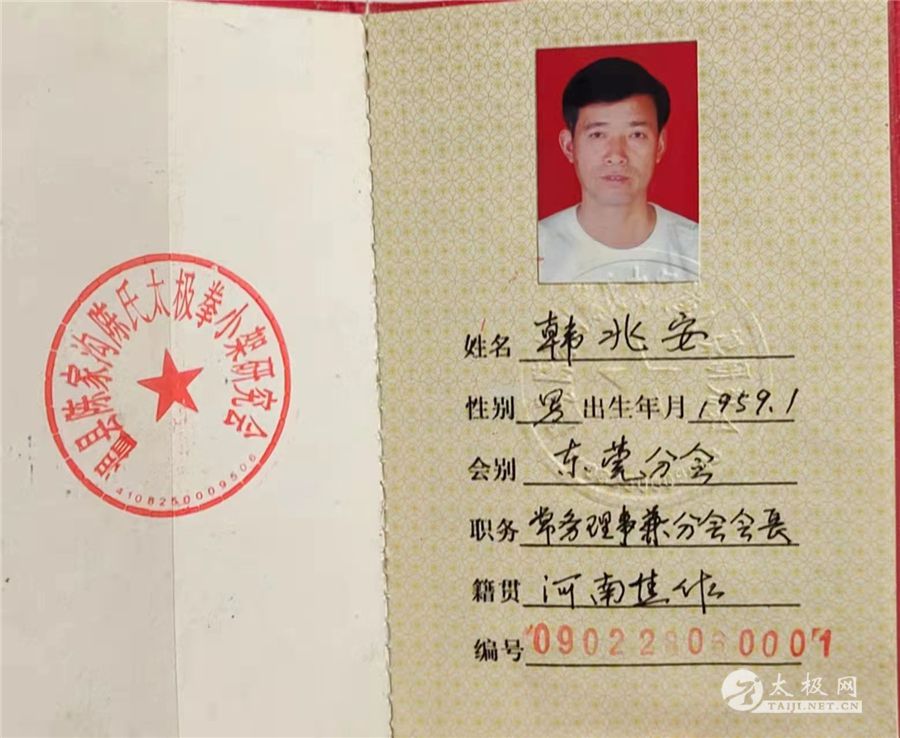 温县陈家沟陈氏太极拳小架研究会
4108250009506
姓名 韩兆安
性别 男 出生年月 1959.1
会别 东莞分会
职务 常务理事兼分会会长
籍贯 河南焦作
编号 090228060001
太极网
TAIJI.NET.CN